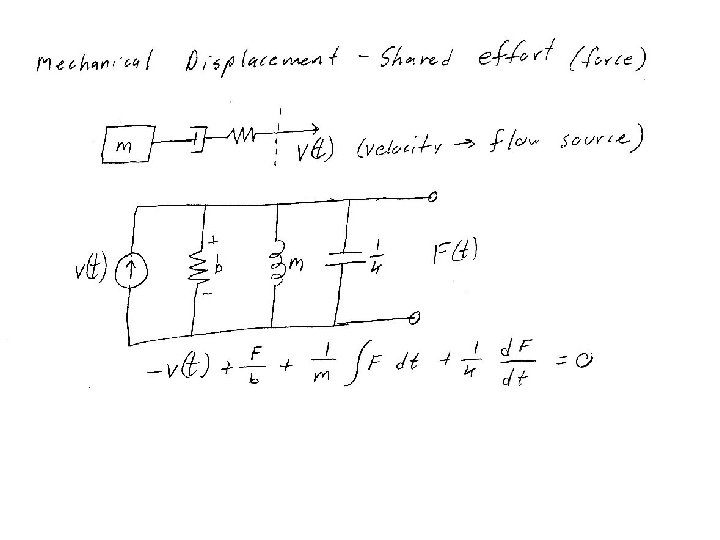 Mechanical Displacement - Shared effort (force)
m
v(t) (velocity → flow source)
v(t) + b - m 1/k F(t)
-v(t) + F/b + 1/m ∫F dt + 1/k dF/dt = 0